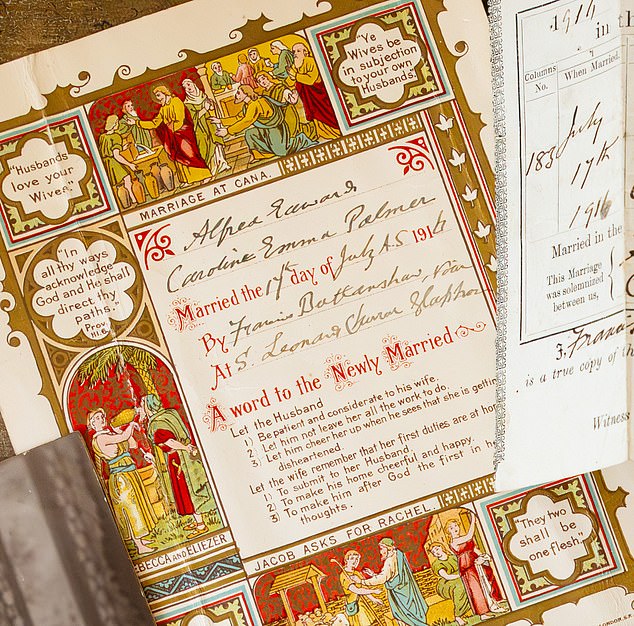 Ye
Wives be
in subjection
to your own
Husbands.
MARRIAGE AT CANA.
"Husbands
love your
Wives"
"In
all thy ways
acknowledge
God and He shall
direct thy
paths."
Prov.
Alfred Edward
Caroline Emma Palmer
Married the 17th day of July A.D. 1916
By Francis Battenshaw,
At S. Leonard
A word to the Newly Married
Let the Husband
1) Be patient and considerate to his wife.
2) Let him not leave her all the work to do.
3) Let him cheer her up when he sees that she is gettin
disheartened.
Let the wife remember that her first duties are at hom
1) To submit to her Husband.
2) To make his home cheerful and happy.
3) To make him after God the first in h
thoughts.
BECCA AND ELIEZER
JACOB ASKS FOR RACHEL.
"They two
shall be
one flesh."
LONDON, S.E.
1916
in th
Columns
No.
When Married.
183
July
17th
1916
Married in the
This Marriage
was solemnized
between us,
3, Franc
is a true copy of t
Witness